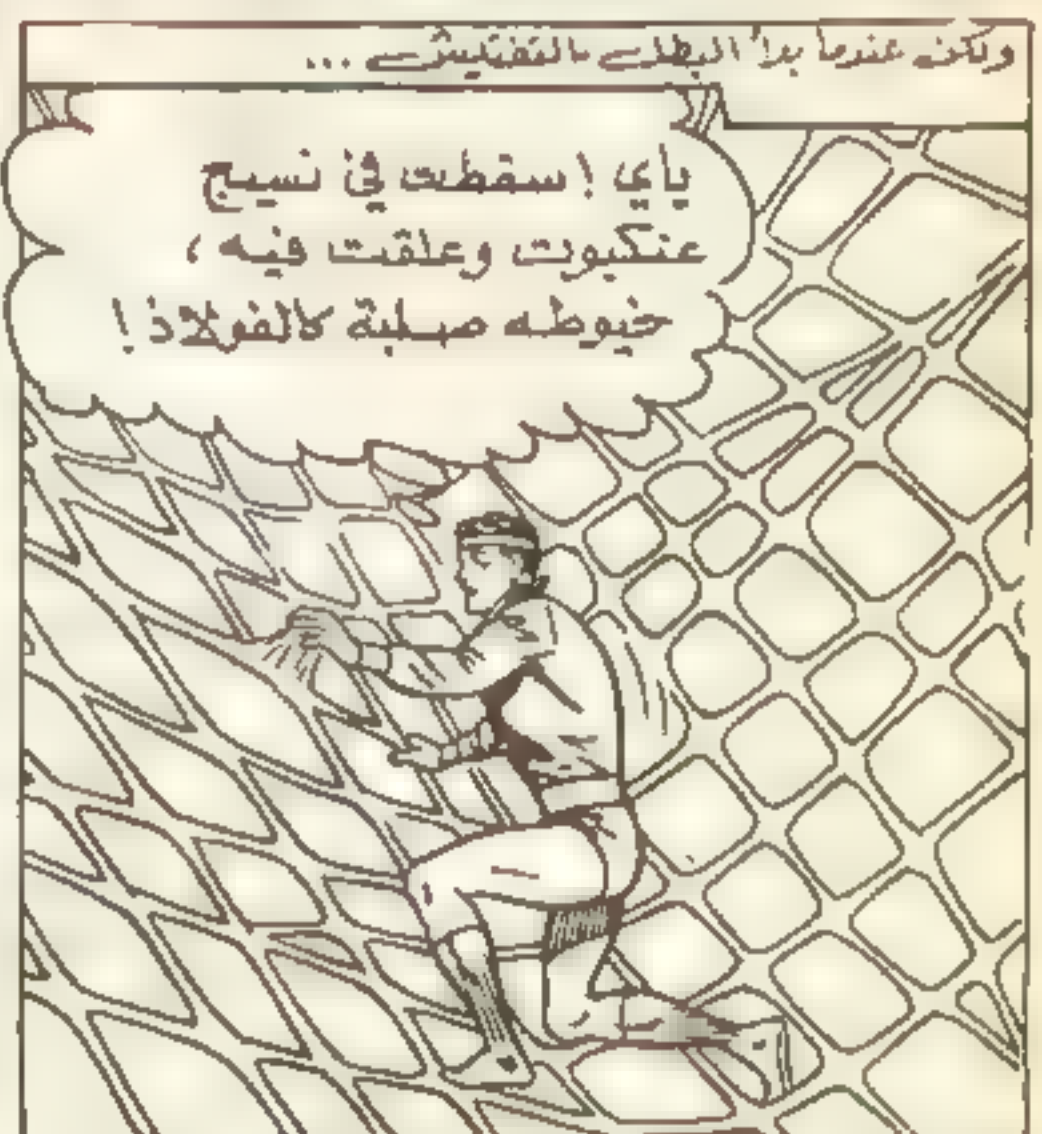 ولكن عندما بدأ البطل بالتفتيش ...
ياي ! سقطت في نسيج
عنكبوت وعلقت فيه ،
خيوطه صلبة كالفولاذ !